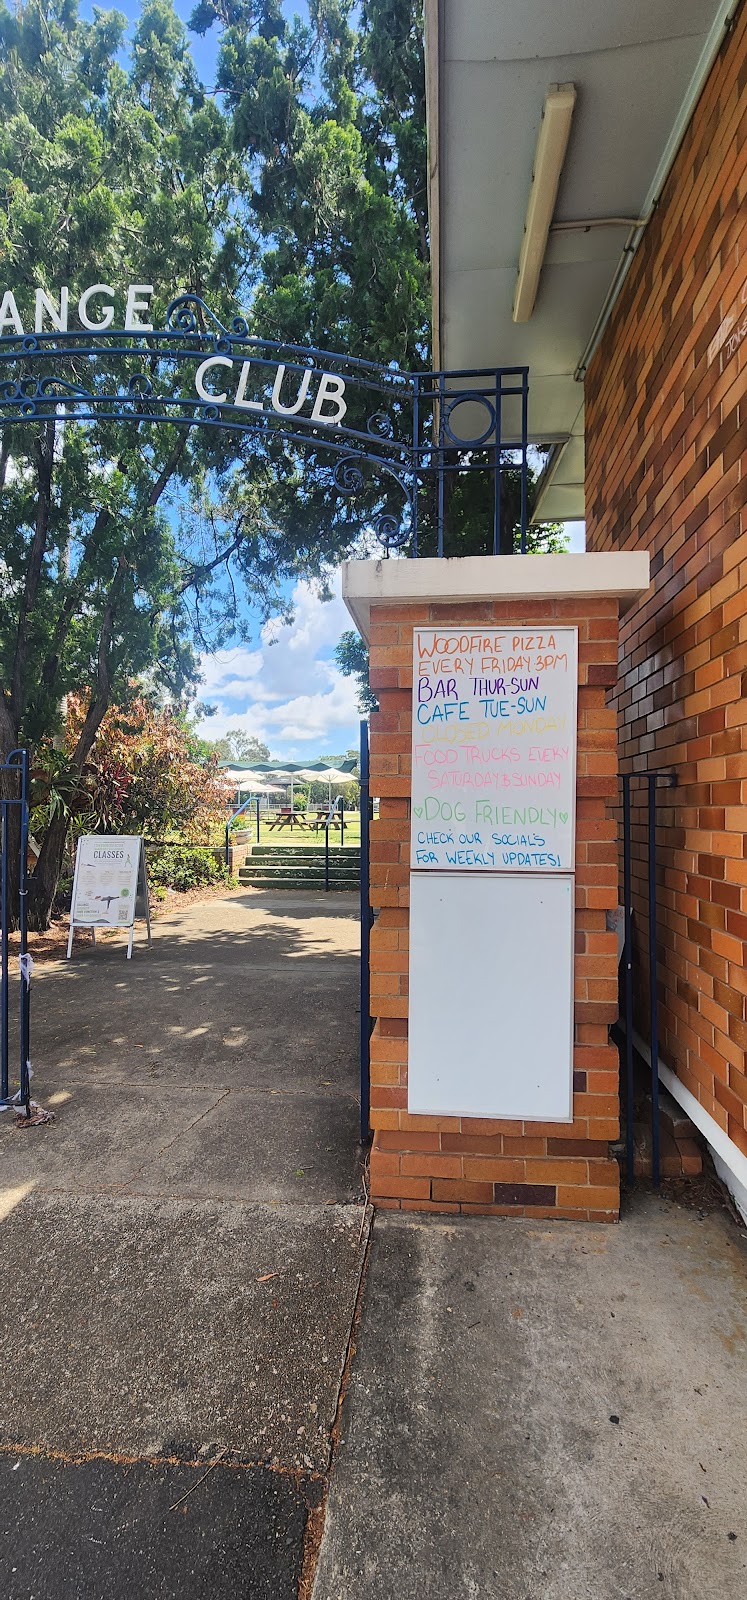 ANGE
CLUB
WOODFIRE PIZZA
EVERY FRIDAY 3PM
BAR THUR-SUN
CAFE TUE-SUN
CLOSED MONDAY
FOOD TRUCKS EVERY
SATURDAY & SUNDAY
♡DOG FRIENDLY♡
CHECK OUR SOCIAL'S
FOR WEEKLY UPDATES!
CLASSES